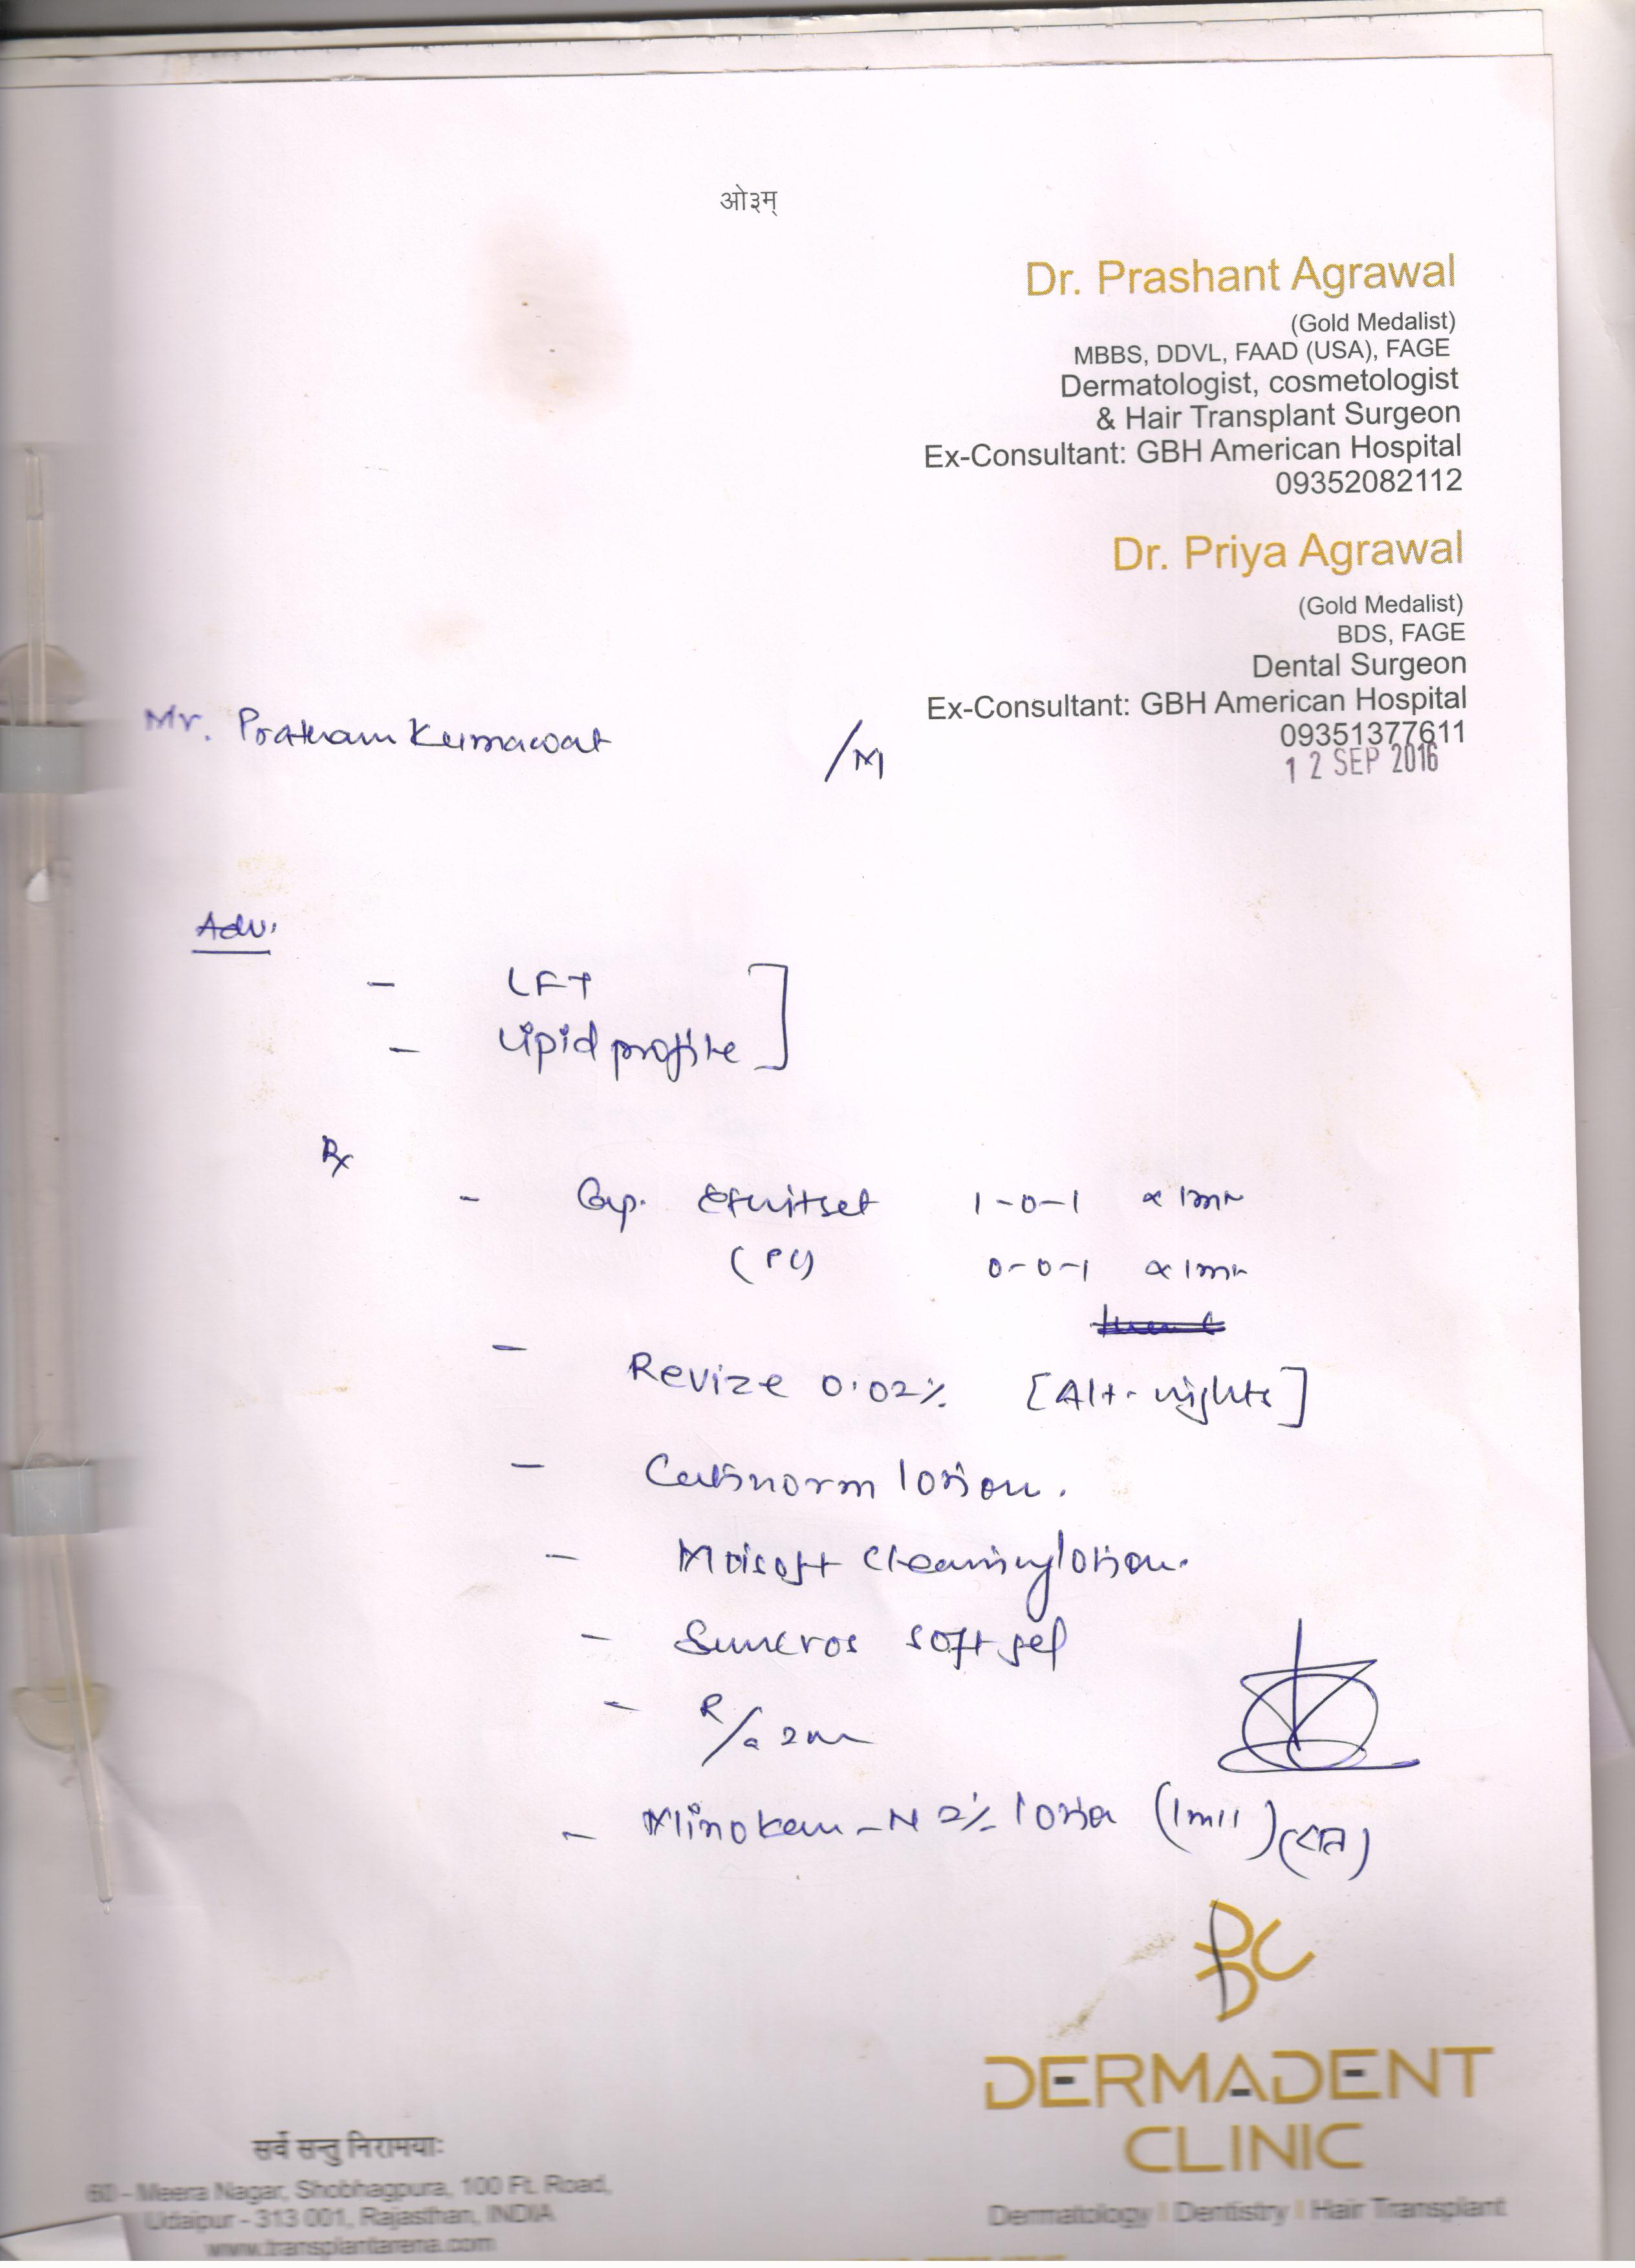 ओ३म्
Dr. Prashant Agrawal
(Gold Medalist)
MBBS, DDVL, FAAD (USA), FAGE
Dermatologist, cosmetologist
& Hair Transplant Surgeon
Ex-Consultant: GBH American Hospital
09352082112
Dr. Priya Agrawal
(Gold Medalist)
BDS, FAGE
Dental Surgeon
Ex-Consultant: GBH American Hospital
09351377611
12 SEP 2016
Mr. Pratham Kumawat /M
Adv.
- LFT
- Lipid profile
Rx
- Cap. 1-0-1 x 1
0-0-1 x 1
- Revize 0.02% [Alt. nights]
- lotion.
- Moisoft Cleansing lotion.
- Suncros soft gel
- R/a 2
- Minokem-N 2% lotion (1ml)
DERMADENT
CLINIC
Dermatology | Dentistry | Hair Transplant
सर्वे सन्तु निरामयाः
60 - Meera Nagar, Shobhagpura, 100 Ft. Road,
Udaipur - 313 001, Rajasthan, INDIA
www.transplantarena.com